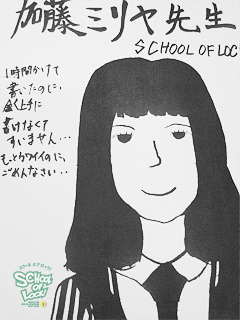 加藤ミリヤ先生
SCHOOL OF LOC
1時間かけて
書いたのに、
全く上手に
書けなくて
すいません…
もっとカワイイのに、
ごめんなさい…
SCHOOL
OF
LOCK!